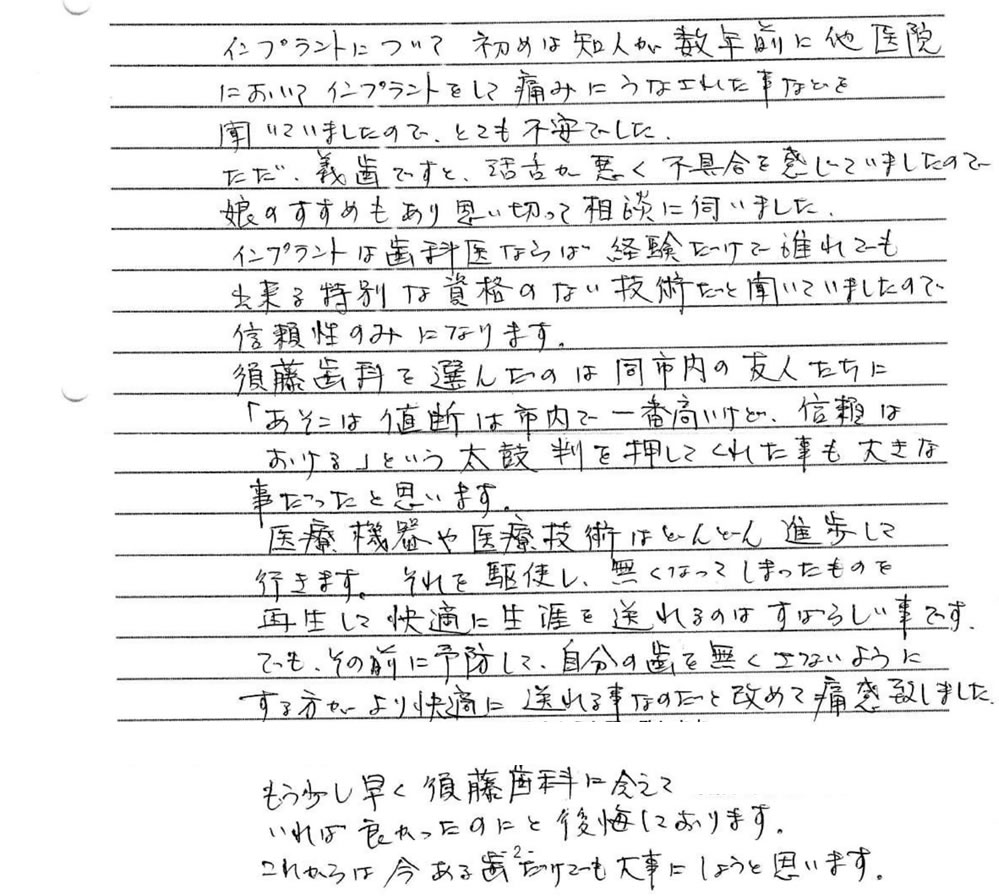 インプラントについて 初めは知人が数年前に他医院
においてインプラントをして痛みにうなされた事などを
聞いていましたので、とても不安でした。
ただ、義歯ですと、活舌が悪く不具合を感じていましたので
娘のすすめもあり思い切って相談に伺いました。
インプラントは歯科医ならば経験だけで誰れでも
出来る特別な資格のない技術だと聞いていましたので
信頼性のみになります。
須藤歯科を選んだのは同市内の友人たちに
「あそこは値断は市内で一番高いけど、信頼は
おける」という太鼓判を押してくれた事も大きな
事だったと思います。
医療機器や医療技術はどんどん進歩して
行きます。それを駆使し、無くなってしまったものを
再生して快適に生涯を送れるのはすばらしい事です。
でも、その前に予防して、自分の歯を無くさないように
する方がより快適に送れる事なのだと改めて痛感致しました。
もう少し早く須藤歯科に会えて
いれば良かったのにと後悔しております。
これからは今ある歯だけでも大事にしようと思います。
-2-